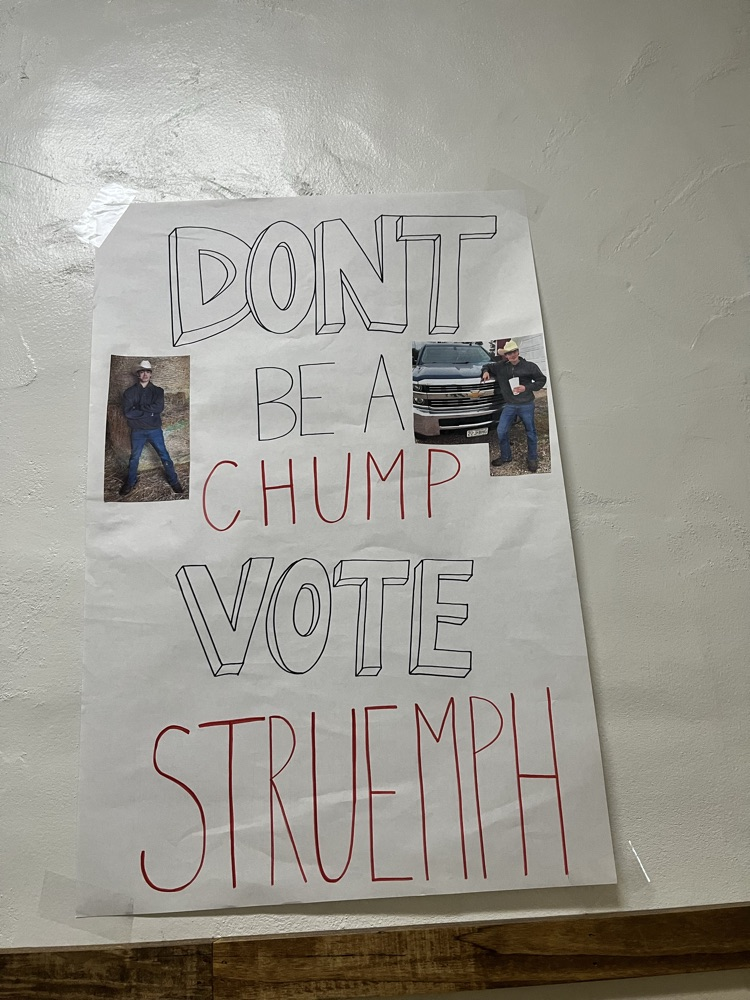 DONT
BE A
CHUMP
VOTE
STRUEMPH